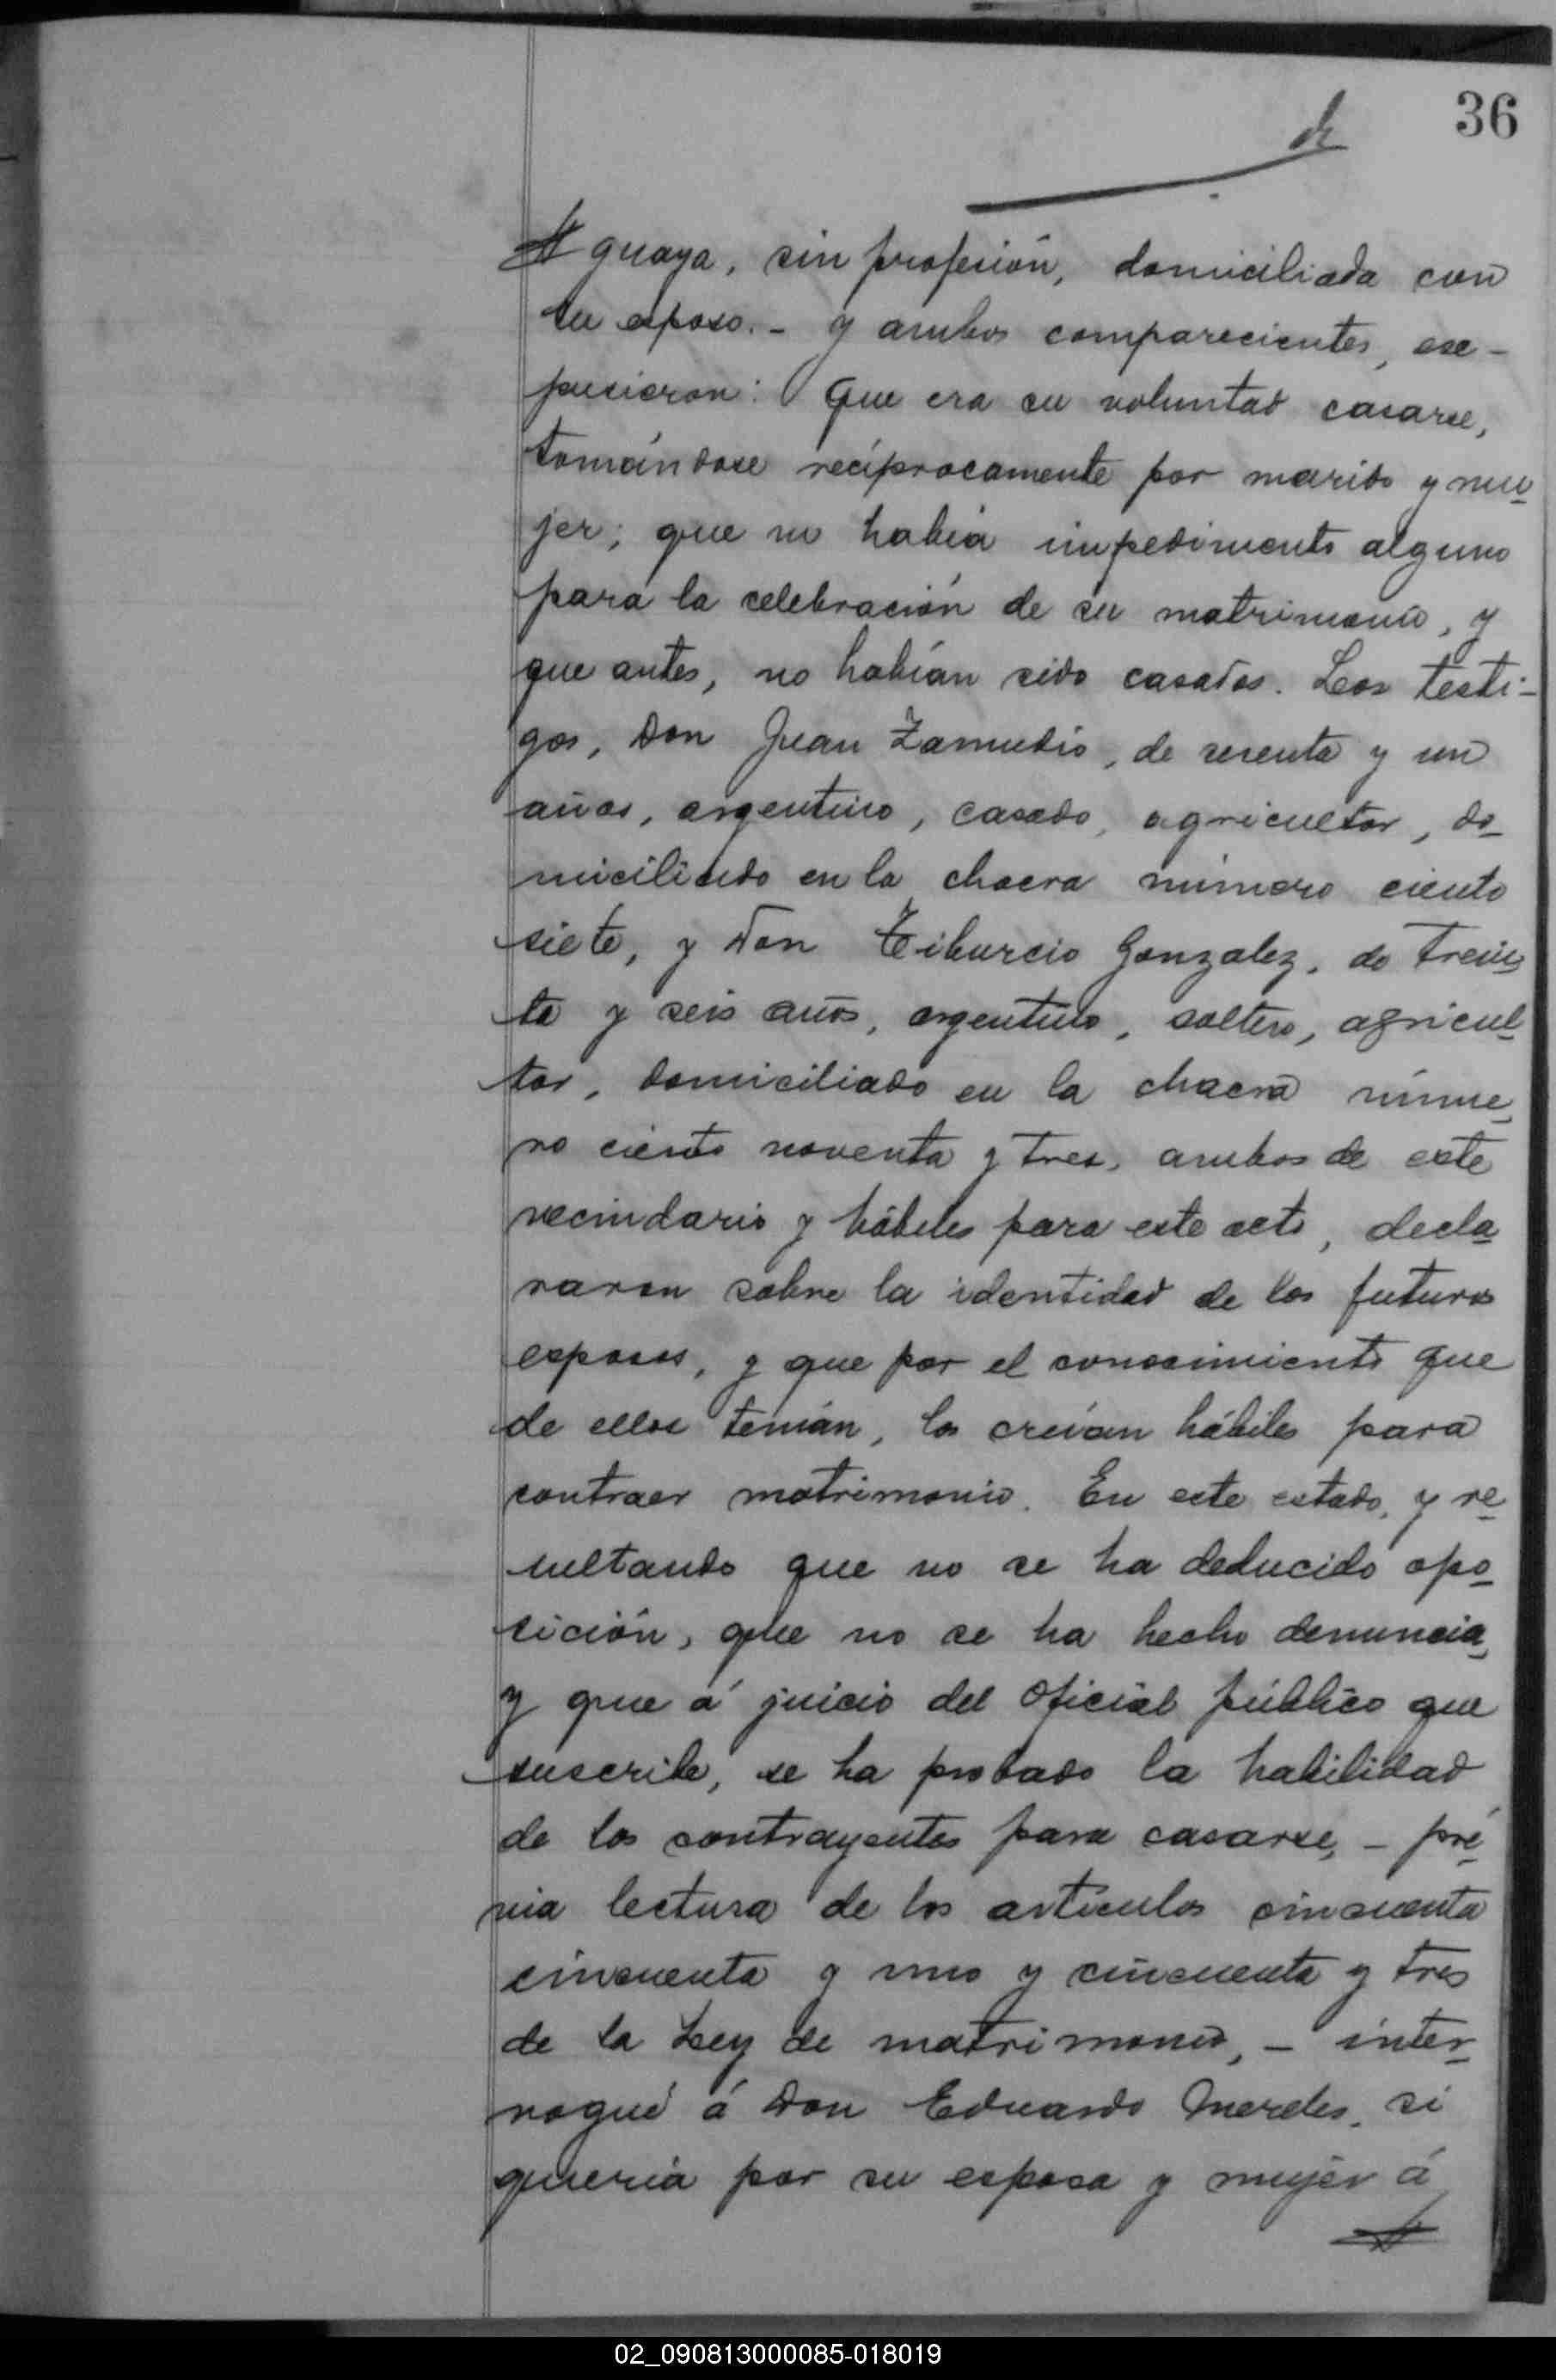 36
guaya, sin profesión, domiciliada con
su esposo. - y ambos comparecientes, ex-
pusieron: Que era su voluntad casarse,
tomándose recíprocamente por marido y mu-
jer; que no había impedimento alguno
para la celebración de su matrimonio, y
que antes, no habían sido casados. Los testi-
gos, Don Juan Zamudio, de sesenta y un
años, argentino, casado, agricultor, do-
miciliado en la chacra número ciento
siete, y Don Tiburcio Gonzalez, de trein-
ta y seis años, argentino, soltero, agricul-
tor, domiciliado en la chacra núme-
ro ciento noventa y tres, ambos de este
vecindario y hábiles para este acto, decla-
raron sobre la identidad de los futuros
esposos, y que por el conocimiento que
de ellos tenían, los creían hábiles para
contraer matrimonio. En este estado, y re-
sultando que no se ha deducido opo-
sición, que no se ha hecho denuncia,
y que á juicio del oficial público que
suscribe, se ha probado la habilidad
de los contrayentes para casarse, - pré-
via lectura de los artículos cincuenta
cincuenta y uno y cincuenta y tres
de la Ley de matrimonio, - inter-
rogué á Don Eduardo Mereles, si
quería por su esposa y mujer á
02_090813000085-018019